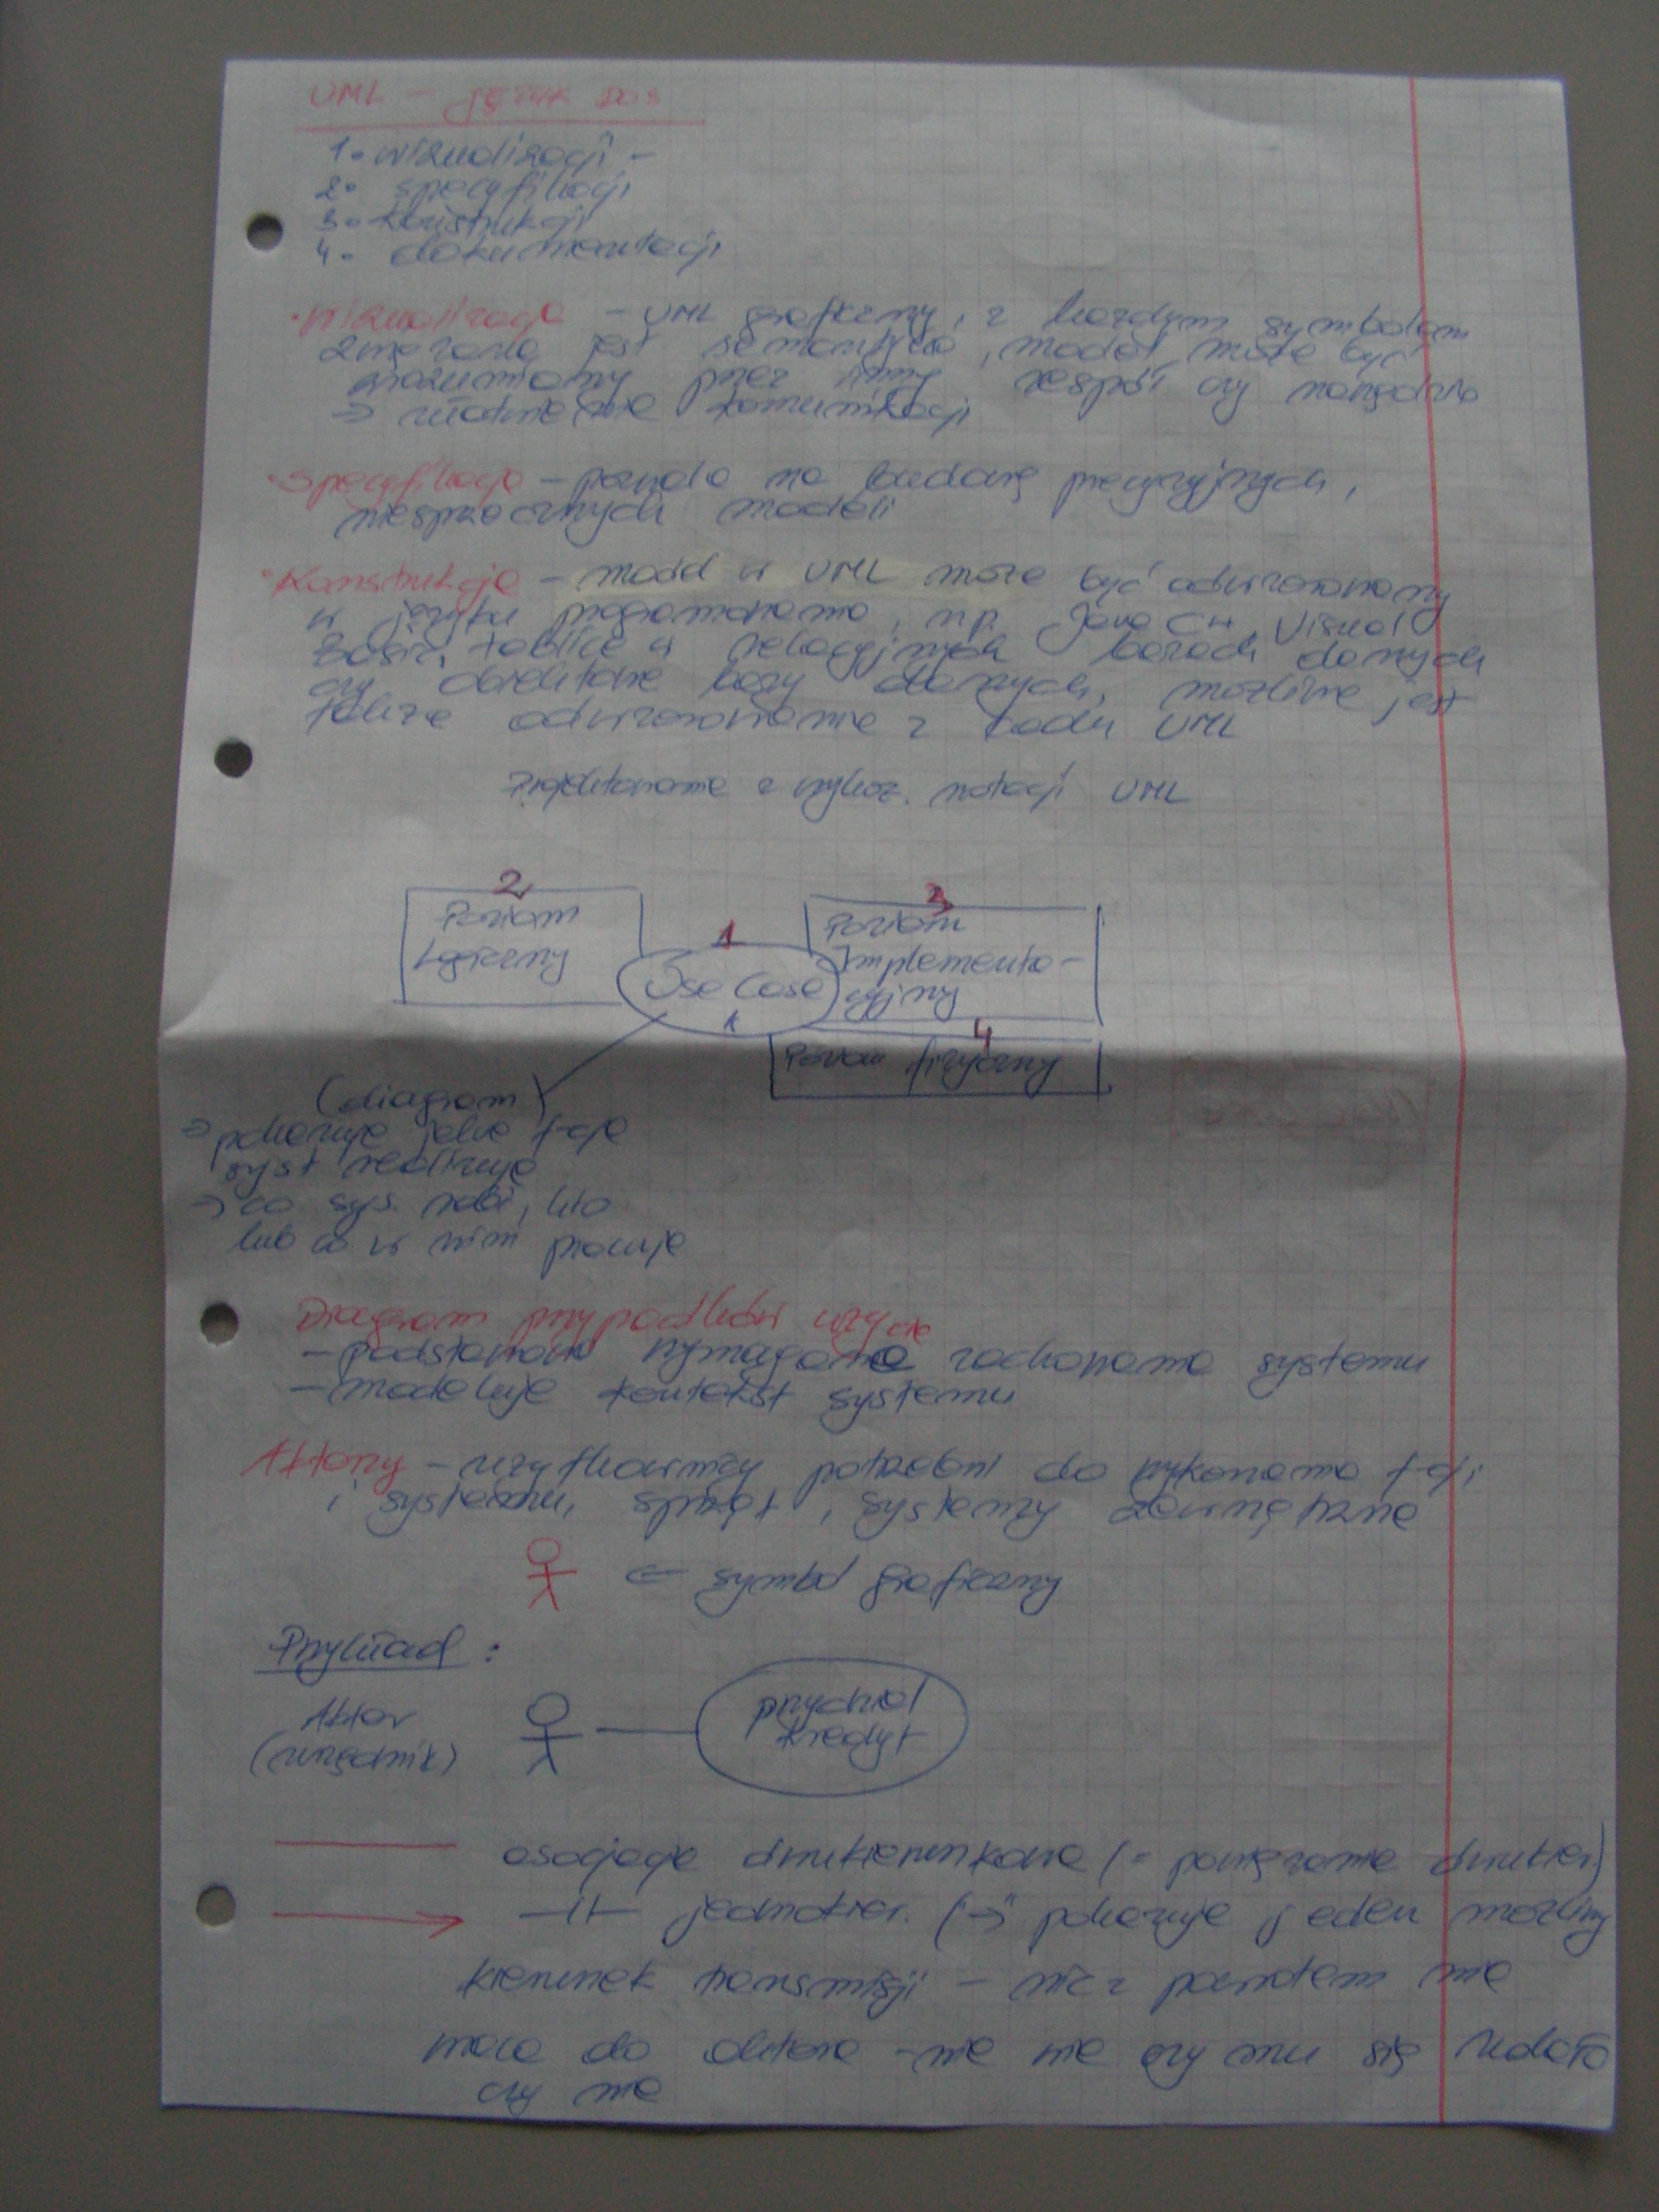 UML – język do:
1. wizualizacji –
2. specyfikacji
3. konstrukcji
4. dokumentacji
• Wizualizacja – UML graficzny, z każdym symbolem
związana jest semantyka, model może być
zrozumiany przez inny zespół czy narzędzie
⇒ ułatwienie komunikacji
• Specyfikacja – pozwala na budowę precyzyjnych,
niesprzecznych modeli
• Konstrukcja – model w UML może być odwzorowany
w języku programowania, np. Java C++, Visual
Basic, tablice w relacyjnych bazach danych
czy obiektowe bazy danych, możliwe jest
także odwzorowanie z kodu UML
Projektowanie z wykorz. notacji UML
2
Poziom
Logiczny
1
Use Case
3
Poziom
Implementa-
cyjny
4
Poziom fizyczny
(diagram)
⇒ pokazuje jakie f-cje
syst realizuje
→ co sys. robi, kto
lub co w nim pracuje
Diagram przypadków użycia
– podstawowe wymagane zachowania systemu
– modeluje kontekst systemu
Aktorzy – użytkownicy potrzebni do wykonania f-cji
systemu, sprzęt, systemy zewnętrzne
← symbol graficzny
Przykład :
Aktor
(urzędnik)
przydziel
kredyt
asocjacja dwukierunkowa (= powiązanie dwukier.)
—||— jednokier. (→ pokazuje jeden możliwy
kierunek transmisji – nic z powrotem nie
wraca do aktora – nie wie czy mu się udało
czy nie